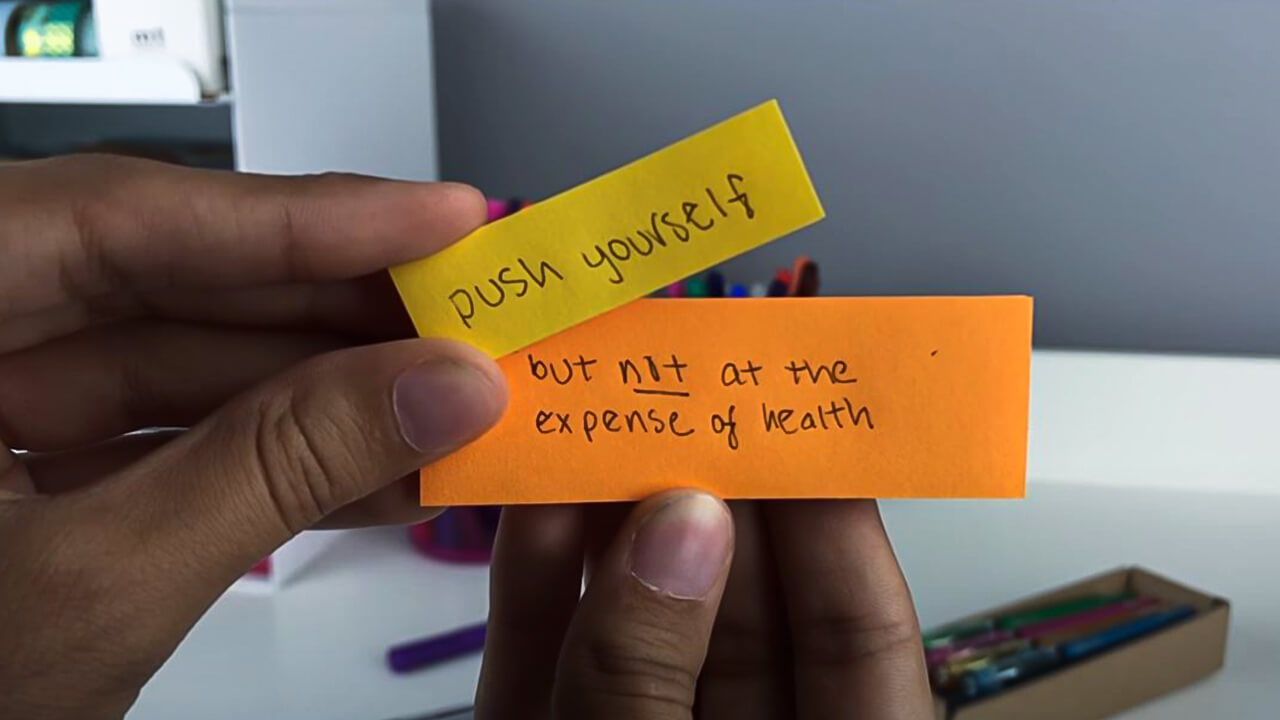 push yourself
but not at the
expense of health